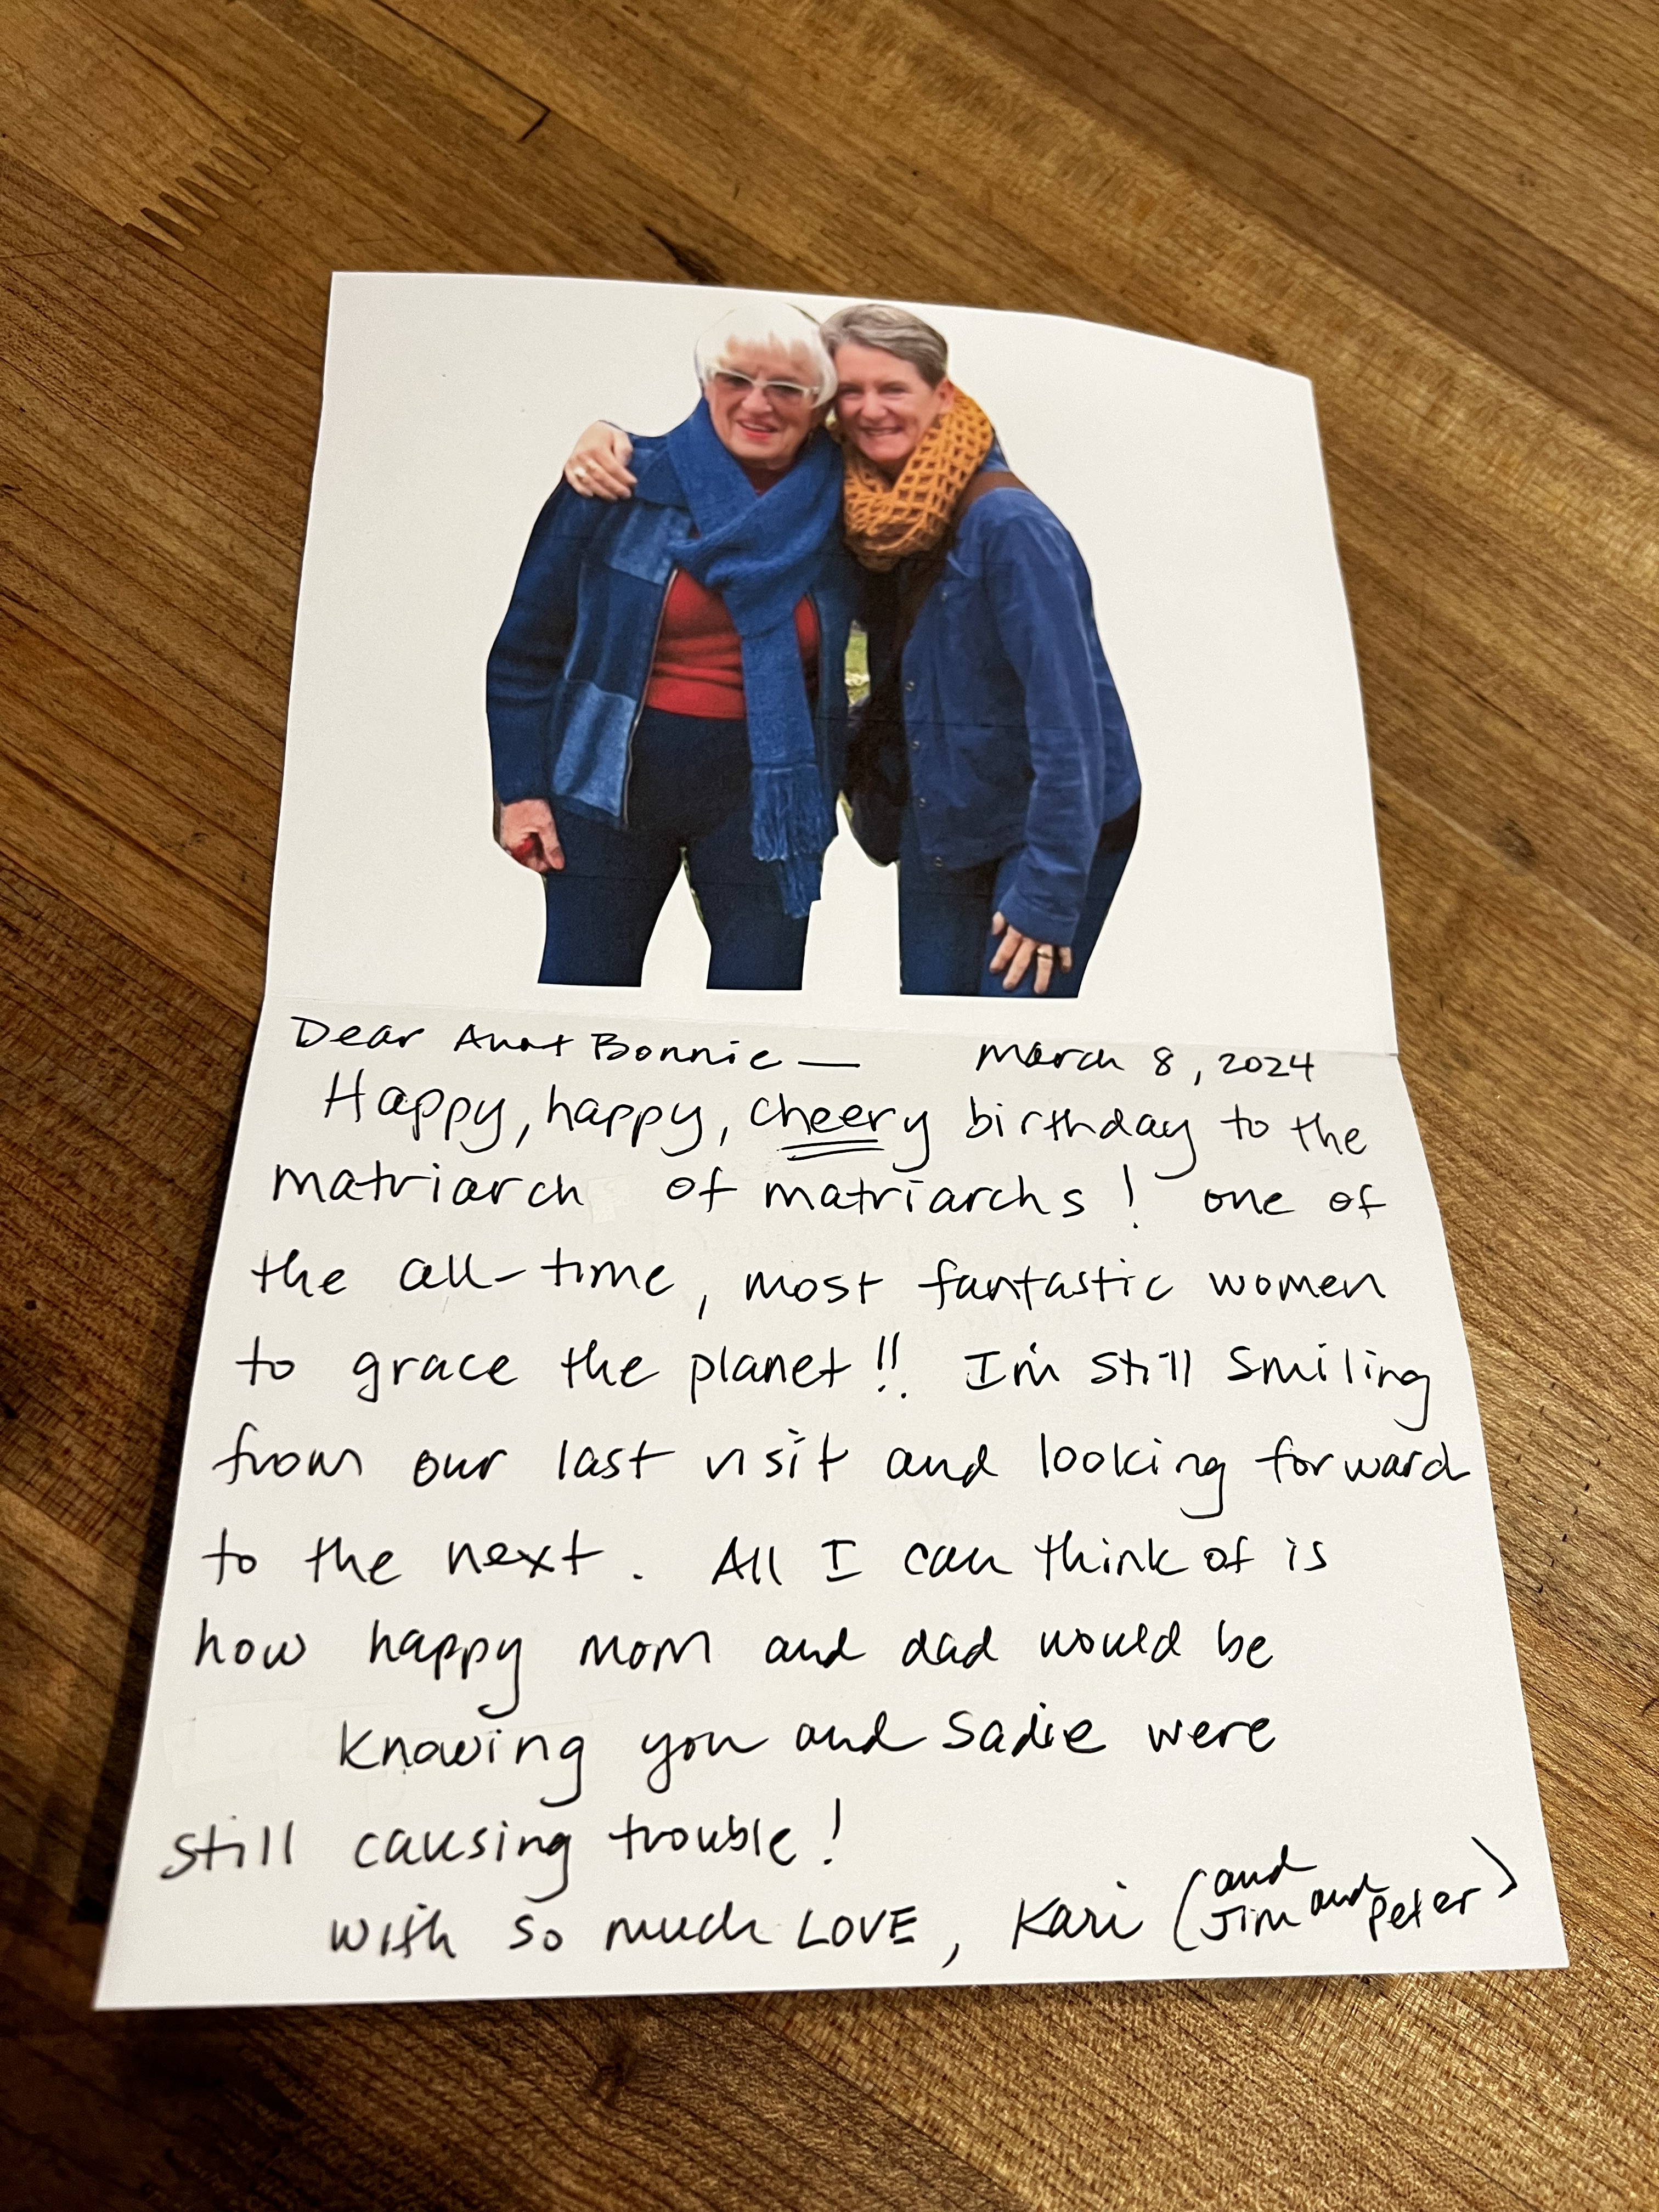 Dear Aunt Bonnie — March 8, 2024
Happy, happy, cheery birthday to the
matriarch of matriarchs! one of
the all-time, most fantastic women
to grace the planet!! I'm still smiling
from our last visit and looking forward
to the next. All I can think of is
how happy mom and dad would be
knowing you and Sadie were
still causing trouble!
with so much LOVE, Kari (and Jim and Peter)